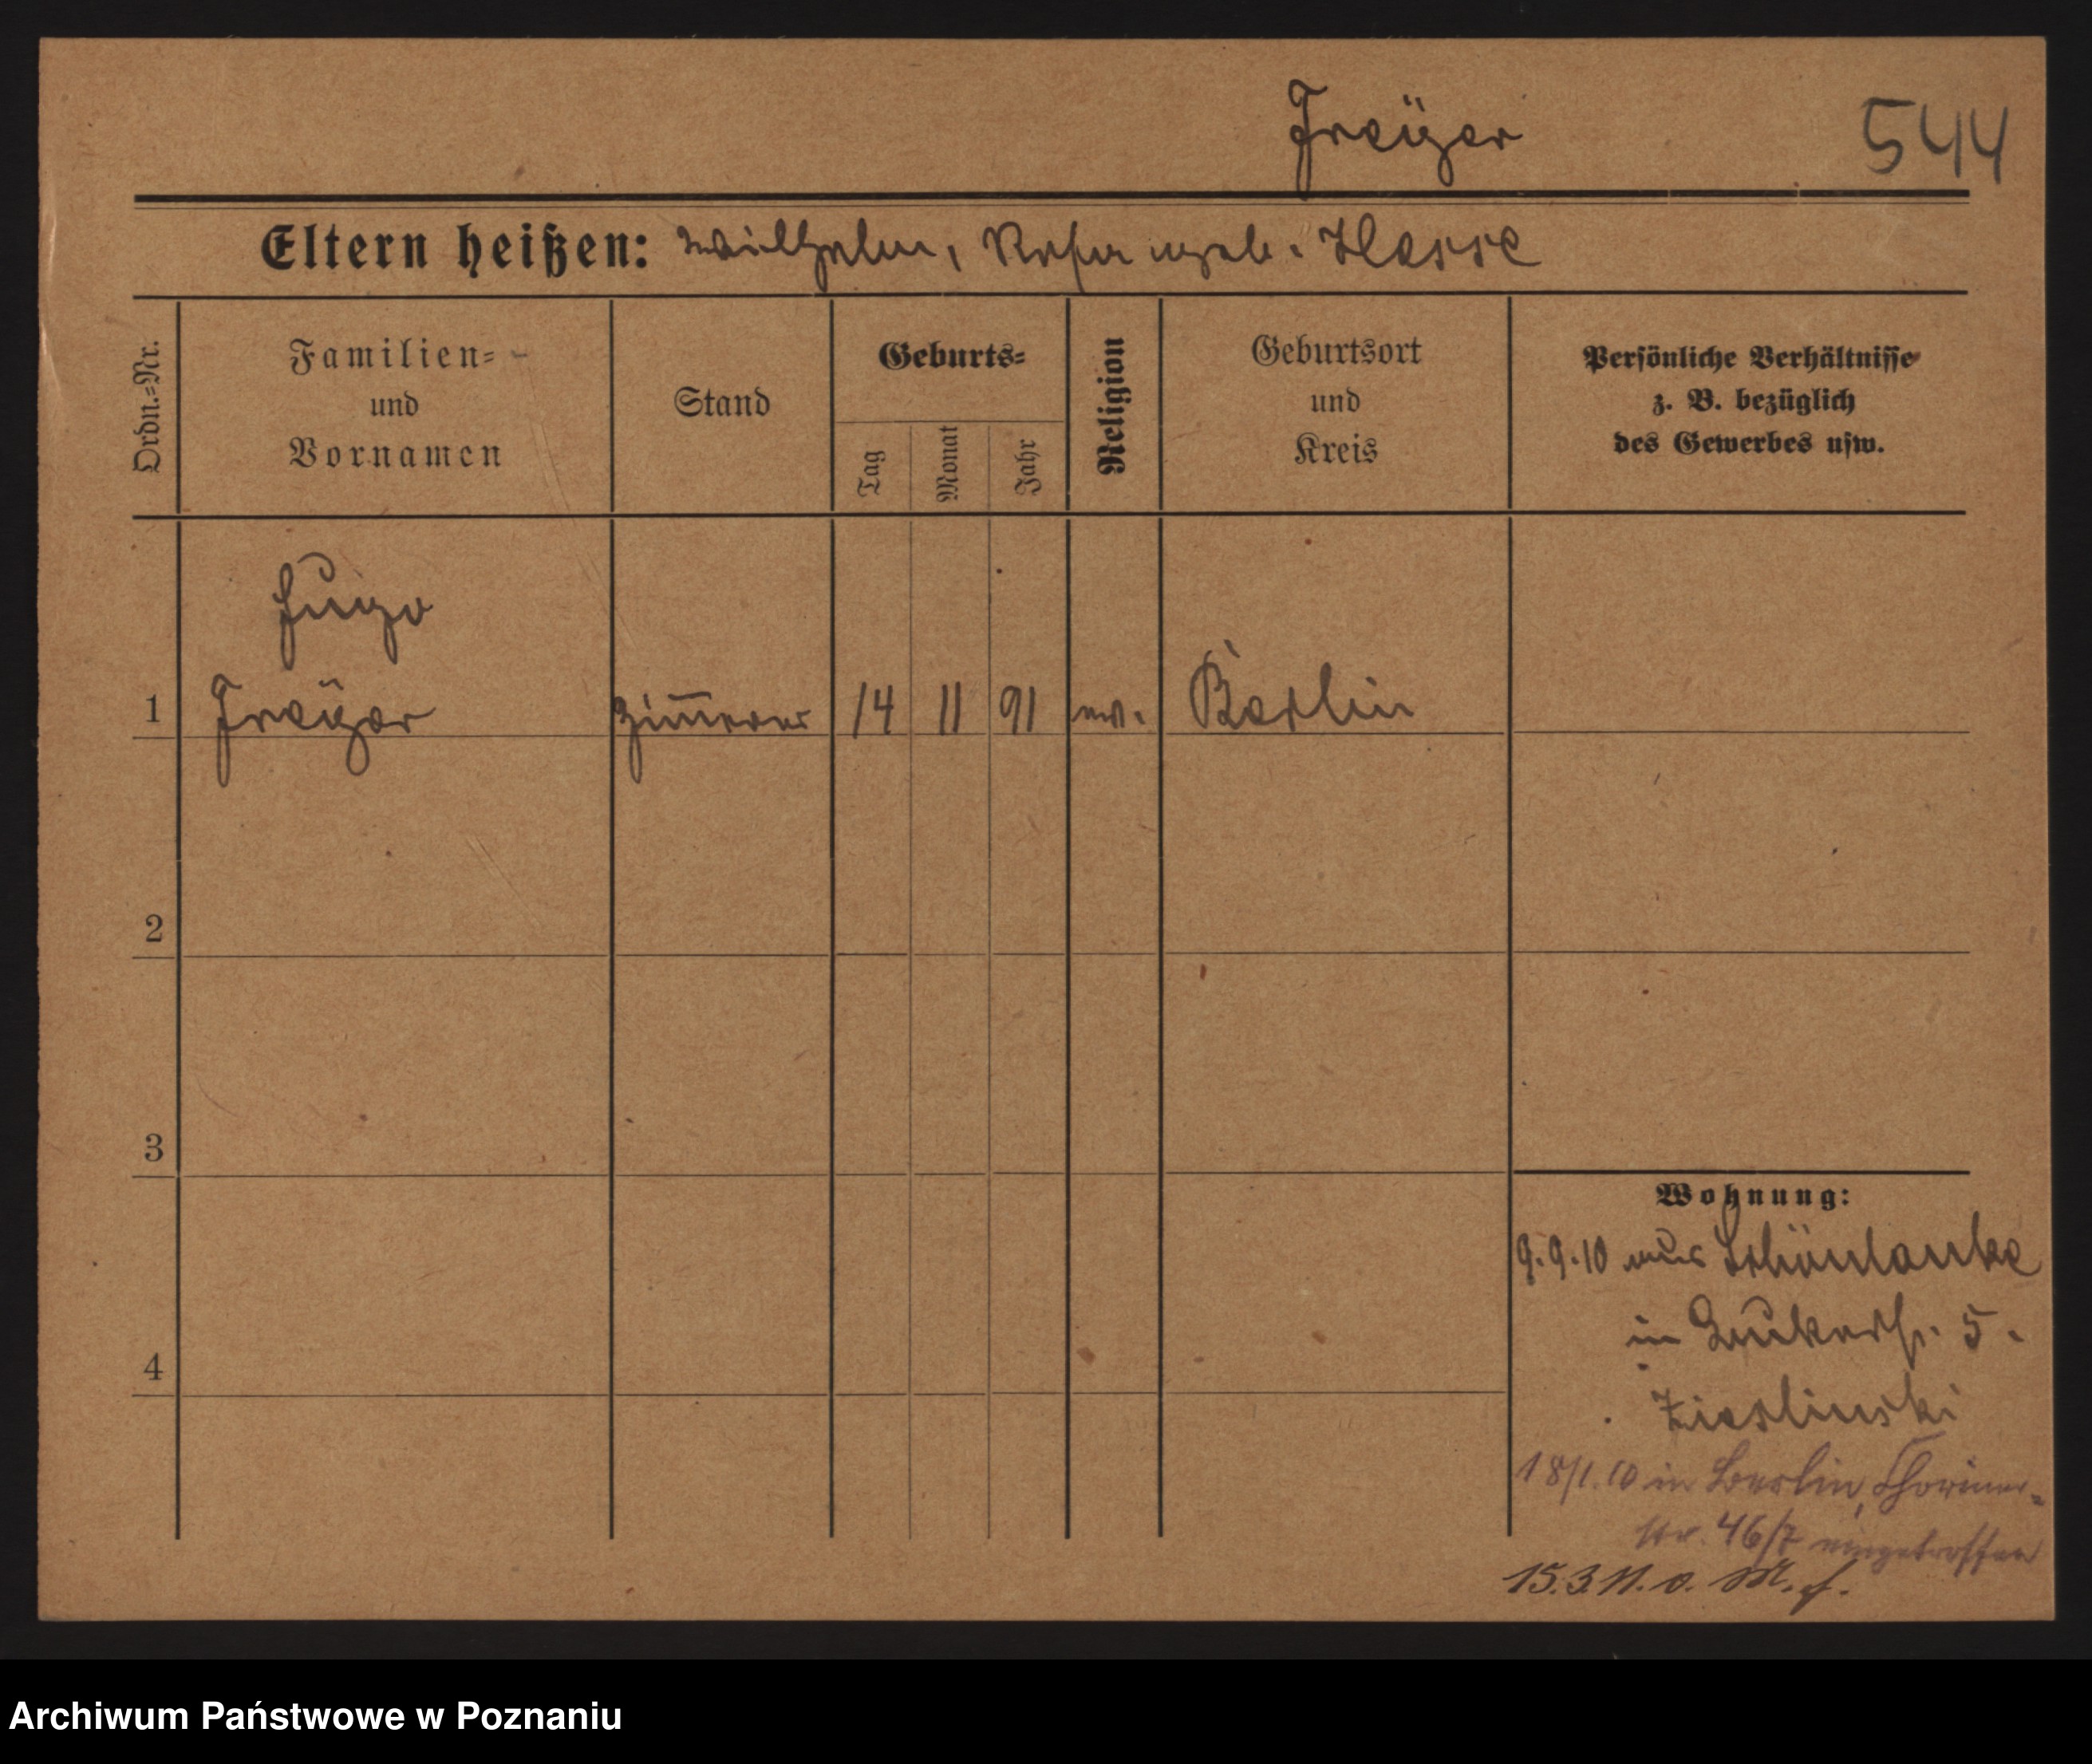 Freÿer 544
Eltern heißen: Wilhelm, Rosa geb. Klesse
Ordn.=Nr.
Familien=
und
Vornamen
Stand
Geburts=
Tag
Monat
Jahr
Religion
Geburtsort
und
Kreis
Persönliche Verhältnisse
z. B. bezüglich
des Gewerbes usw.
Hugo
1 Freÿer Zim̅erer 14 11 91 ev. Berlin
2
3
4
Wohnung:
9.9.10 aus Schönlanke
in 5.
Zieslinski
in Berlin,
str. 46/7 eingetroffen
15.3.11. o. M. f.
Archiwum Państwowe w Poznaniu